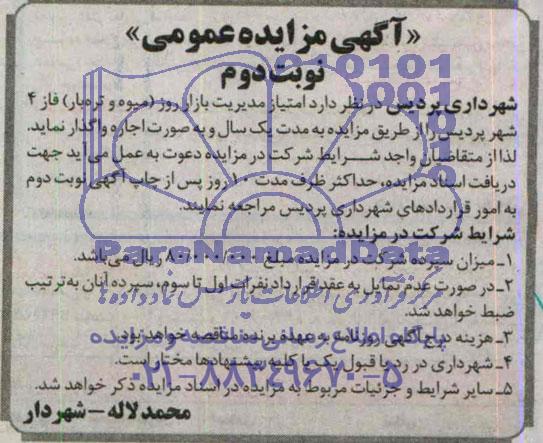 «آگهی مزایده عمومی»
نوبت دوم
شهرداری پردیس در نظر دارد امتیاز مدیریت بازار روز (میوه و تره‌بار) فاز ۴
شهر پردیس را از طریق مزایده به مدت یک سال و به صورت اجاره واگذار نماید.
لذا از متقاضیان واجد شرایط شرکت در مزایده دعوت به عمل می‌آید جهت
دریافت اسناد مزایده، حداکثر ظرف مدت ۱۰ روز پس از چاپ آگهی نوبت دوم
به امور قراردادهای شهرداری پردیس مراجعه نمایند.
شرایط شرکت در مزایده:
۱ـ میزان سپرده شرکت در مزایده مبلغ ۸۰/۰۰۰/۰۰۰ ریال می‌باشد.
۲ـ در صورت عدم تمایل به عقد قرارداد نفرات اول تا سوم، سپرده آنان به ترتیب
ضبط خواهد شد.
۳ـ هزینه درج آگهی روزنامه به عهده برنده مناقصه خواهد بود.
۴ـ شهرداری در رد یا قبول یک یا کلیه پیشنهادها مختار است.
۵ـ سایر شرایط و جزئیات مربوط به مزایده در اسناد مزایده ذکر خواهد شد.
محمد لاله – شهردار
ParsNamadData
مرکز فرآوری اطلاعات پارس نماد داده‌ها
پایگاه اطلاع رسانی مناقصه و مزایده
۰۲۱-۸۸۳۴۹۶۷۰-۵